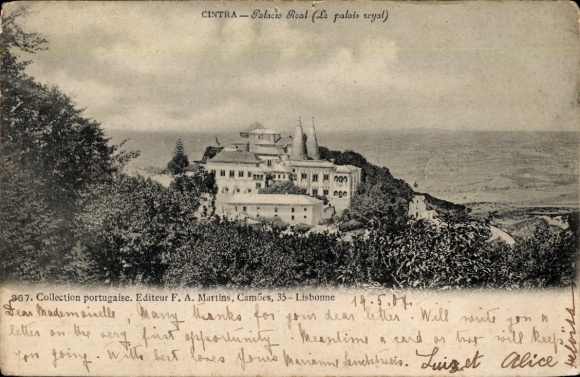 CINTRA — Palacio Real (Le palais royal)
367. Collection portugaise. Editeur F. A. Martins, Camões, 35 – Lisbonne
Dear Mademoiselle, Many thanks for your dear letter. Will write you a
letter on the very first opportunity. Meantime a card or two will keep
you going. With best love yours Marianne
Luiz et Alice